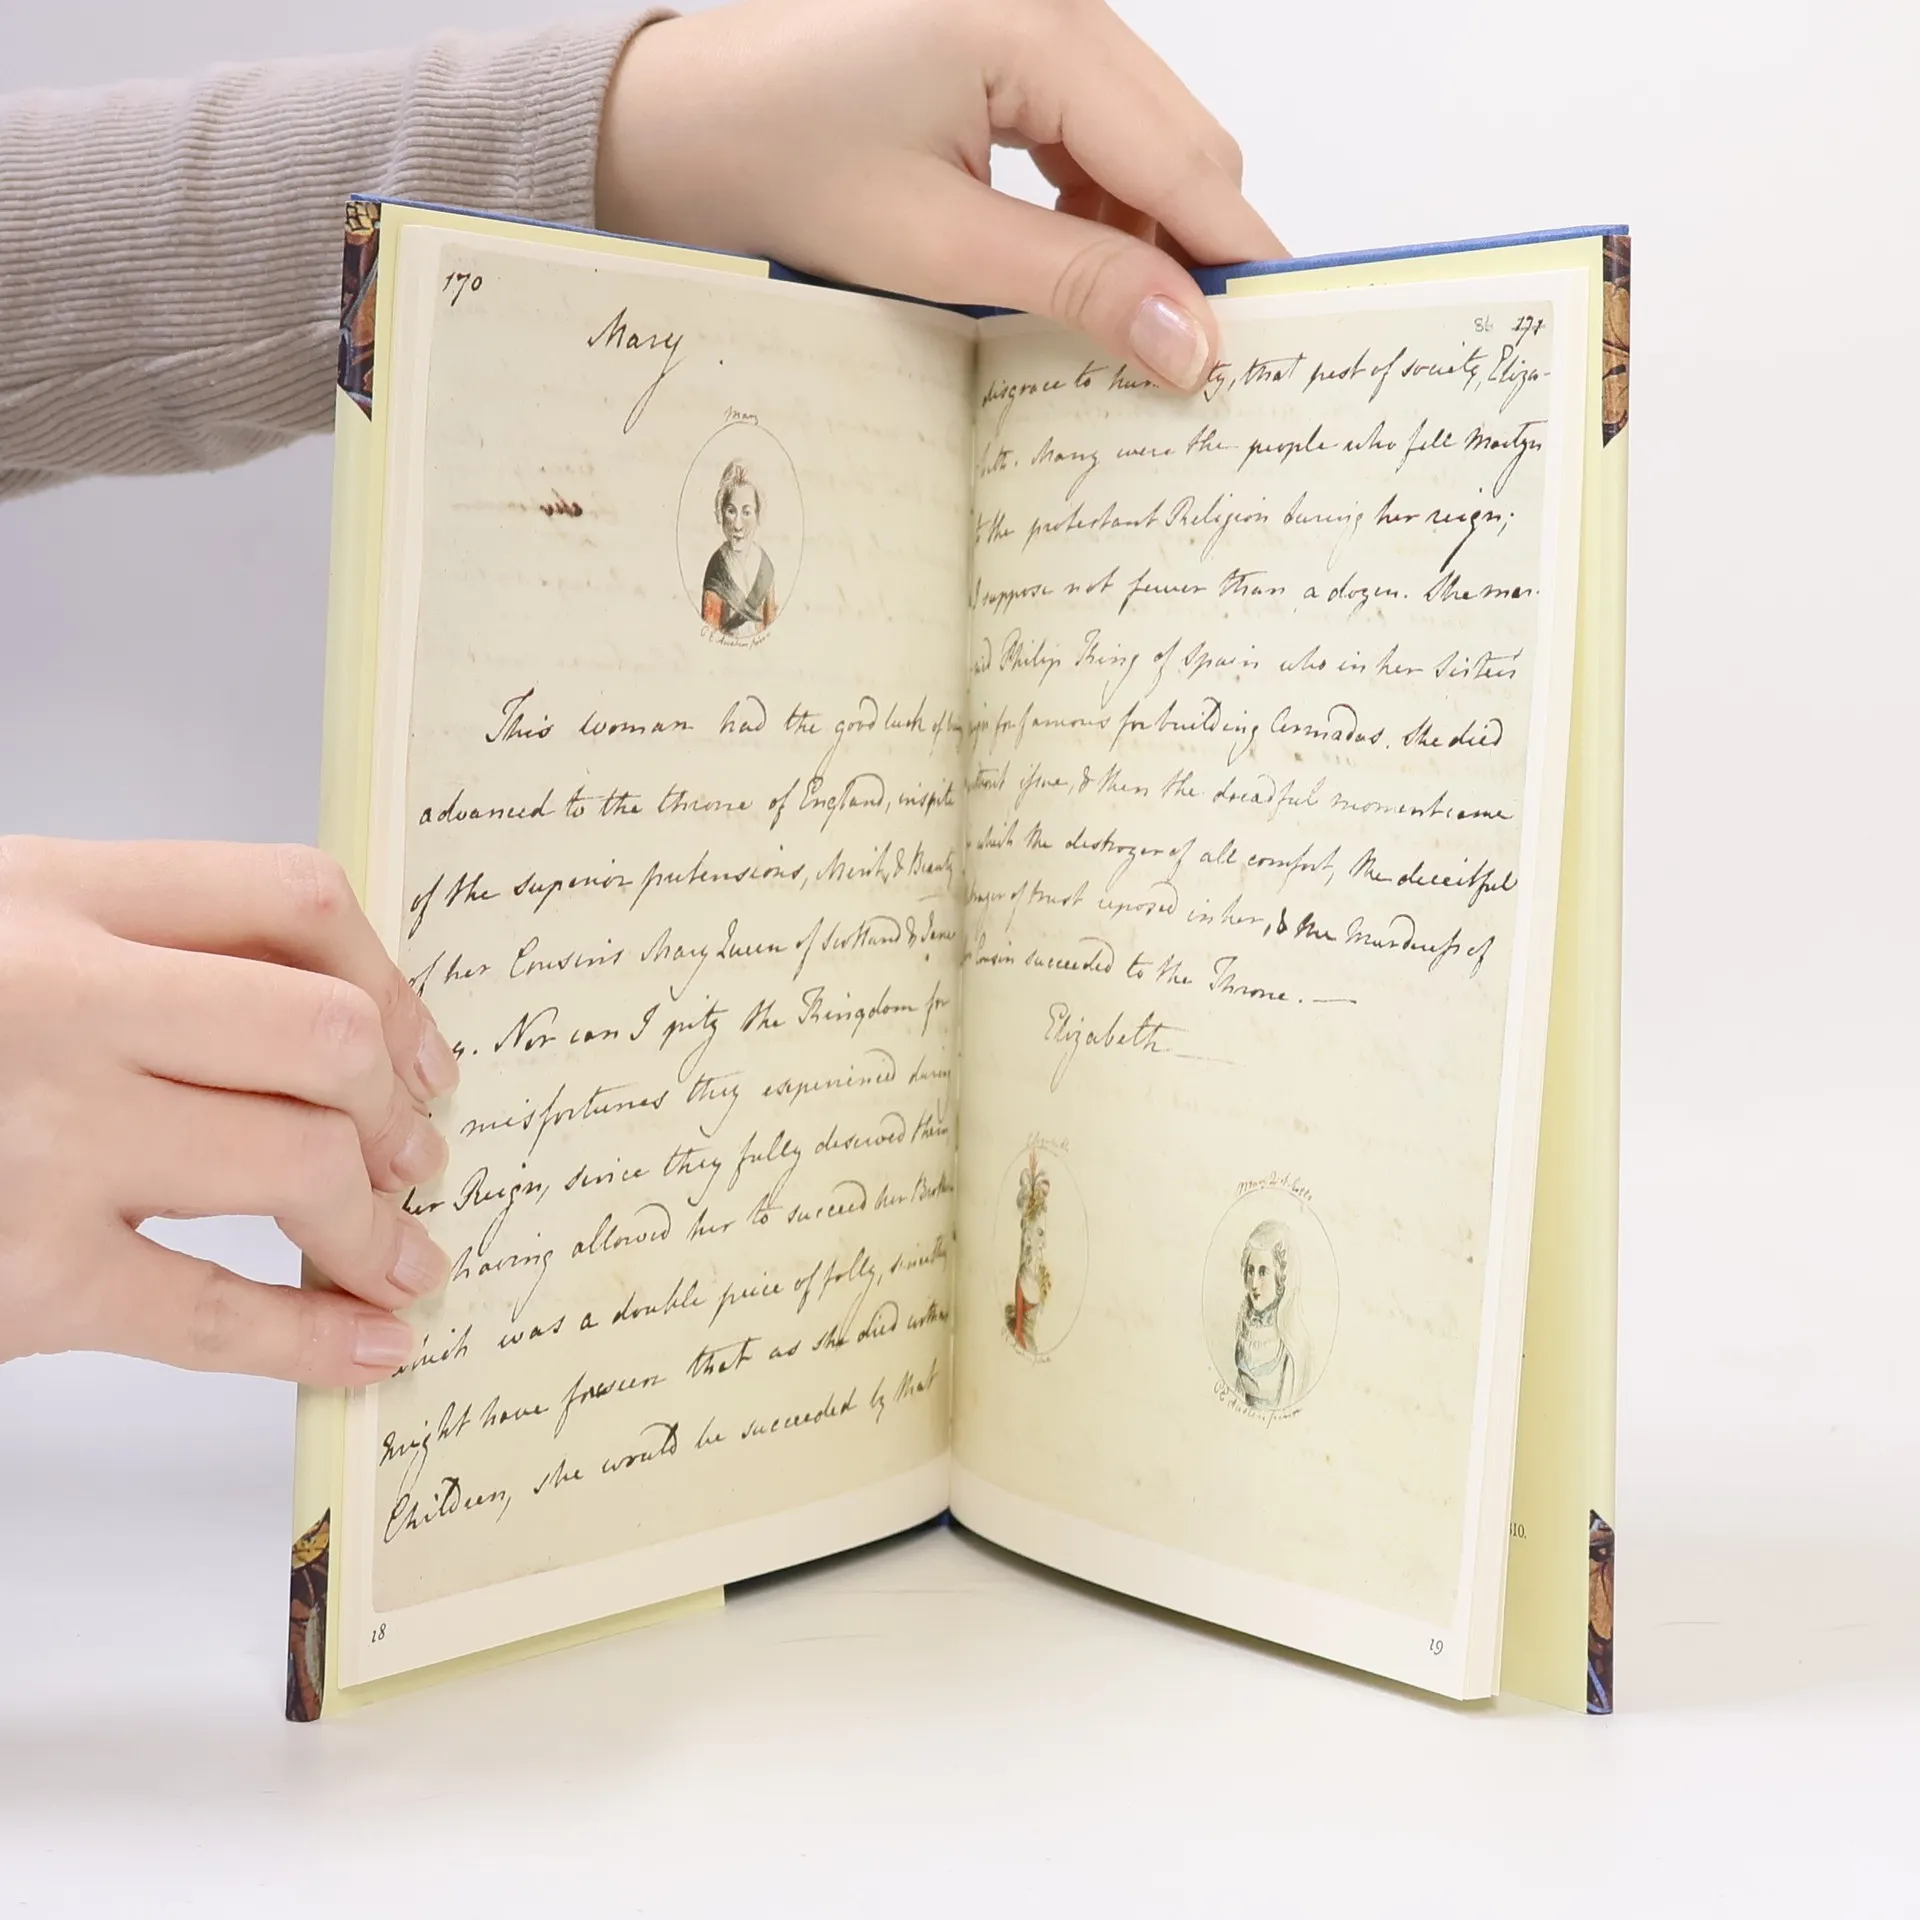 170
Mary
Mary
C E Austen pinx
This woman had the good luck of
advanced to the throne of England, inspite
of the superior pretensions, Merit, & Beauty
of her Cousins Mary Queen of Scotland & Jane
Nor can I pity the Kingdom for
misfortunes they experienced during
her Reign, since they fully deserved them,
having allowed her to succeed her Brother
which was a double peice of folly, since they
might have foreseen that as she died without
Children, she would be succeeded by that
18
86 171
disgrace to ty, that pest of society, Eliza-
-beth. Many were the people who fell Martyrs
to the protestant Religion during her reign;
I suppose not fewer than a dozen. She mar-
Philip King of Spain who in her Sister's
for famous for building Armadas. She died
without issue, & then the dreadful moment came
which the destroyer of all comfort, the deceitful
of trust reposed in her, & the Murderess of
Cousin succeeded to the Throne. —
Elizabeth —
Mary Q. of Scots
C E Austen pinx
19
310.